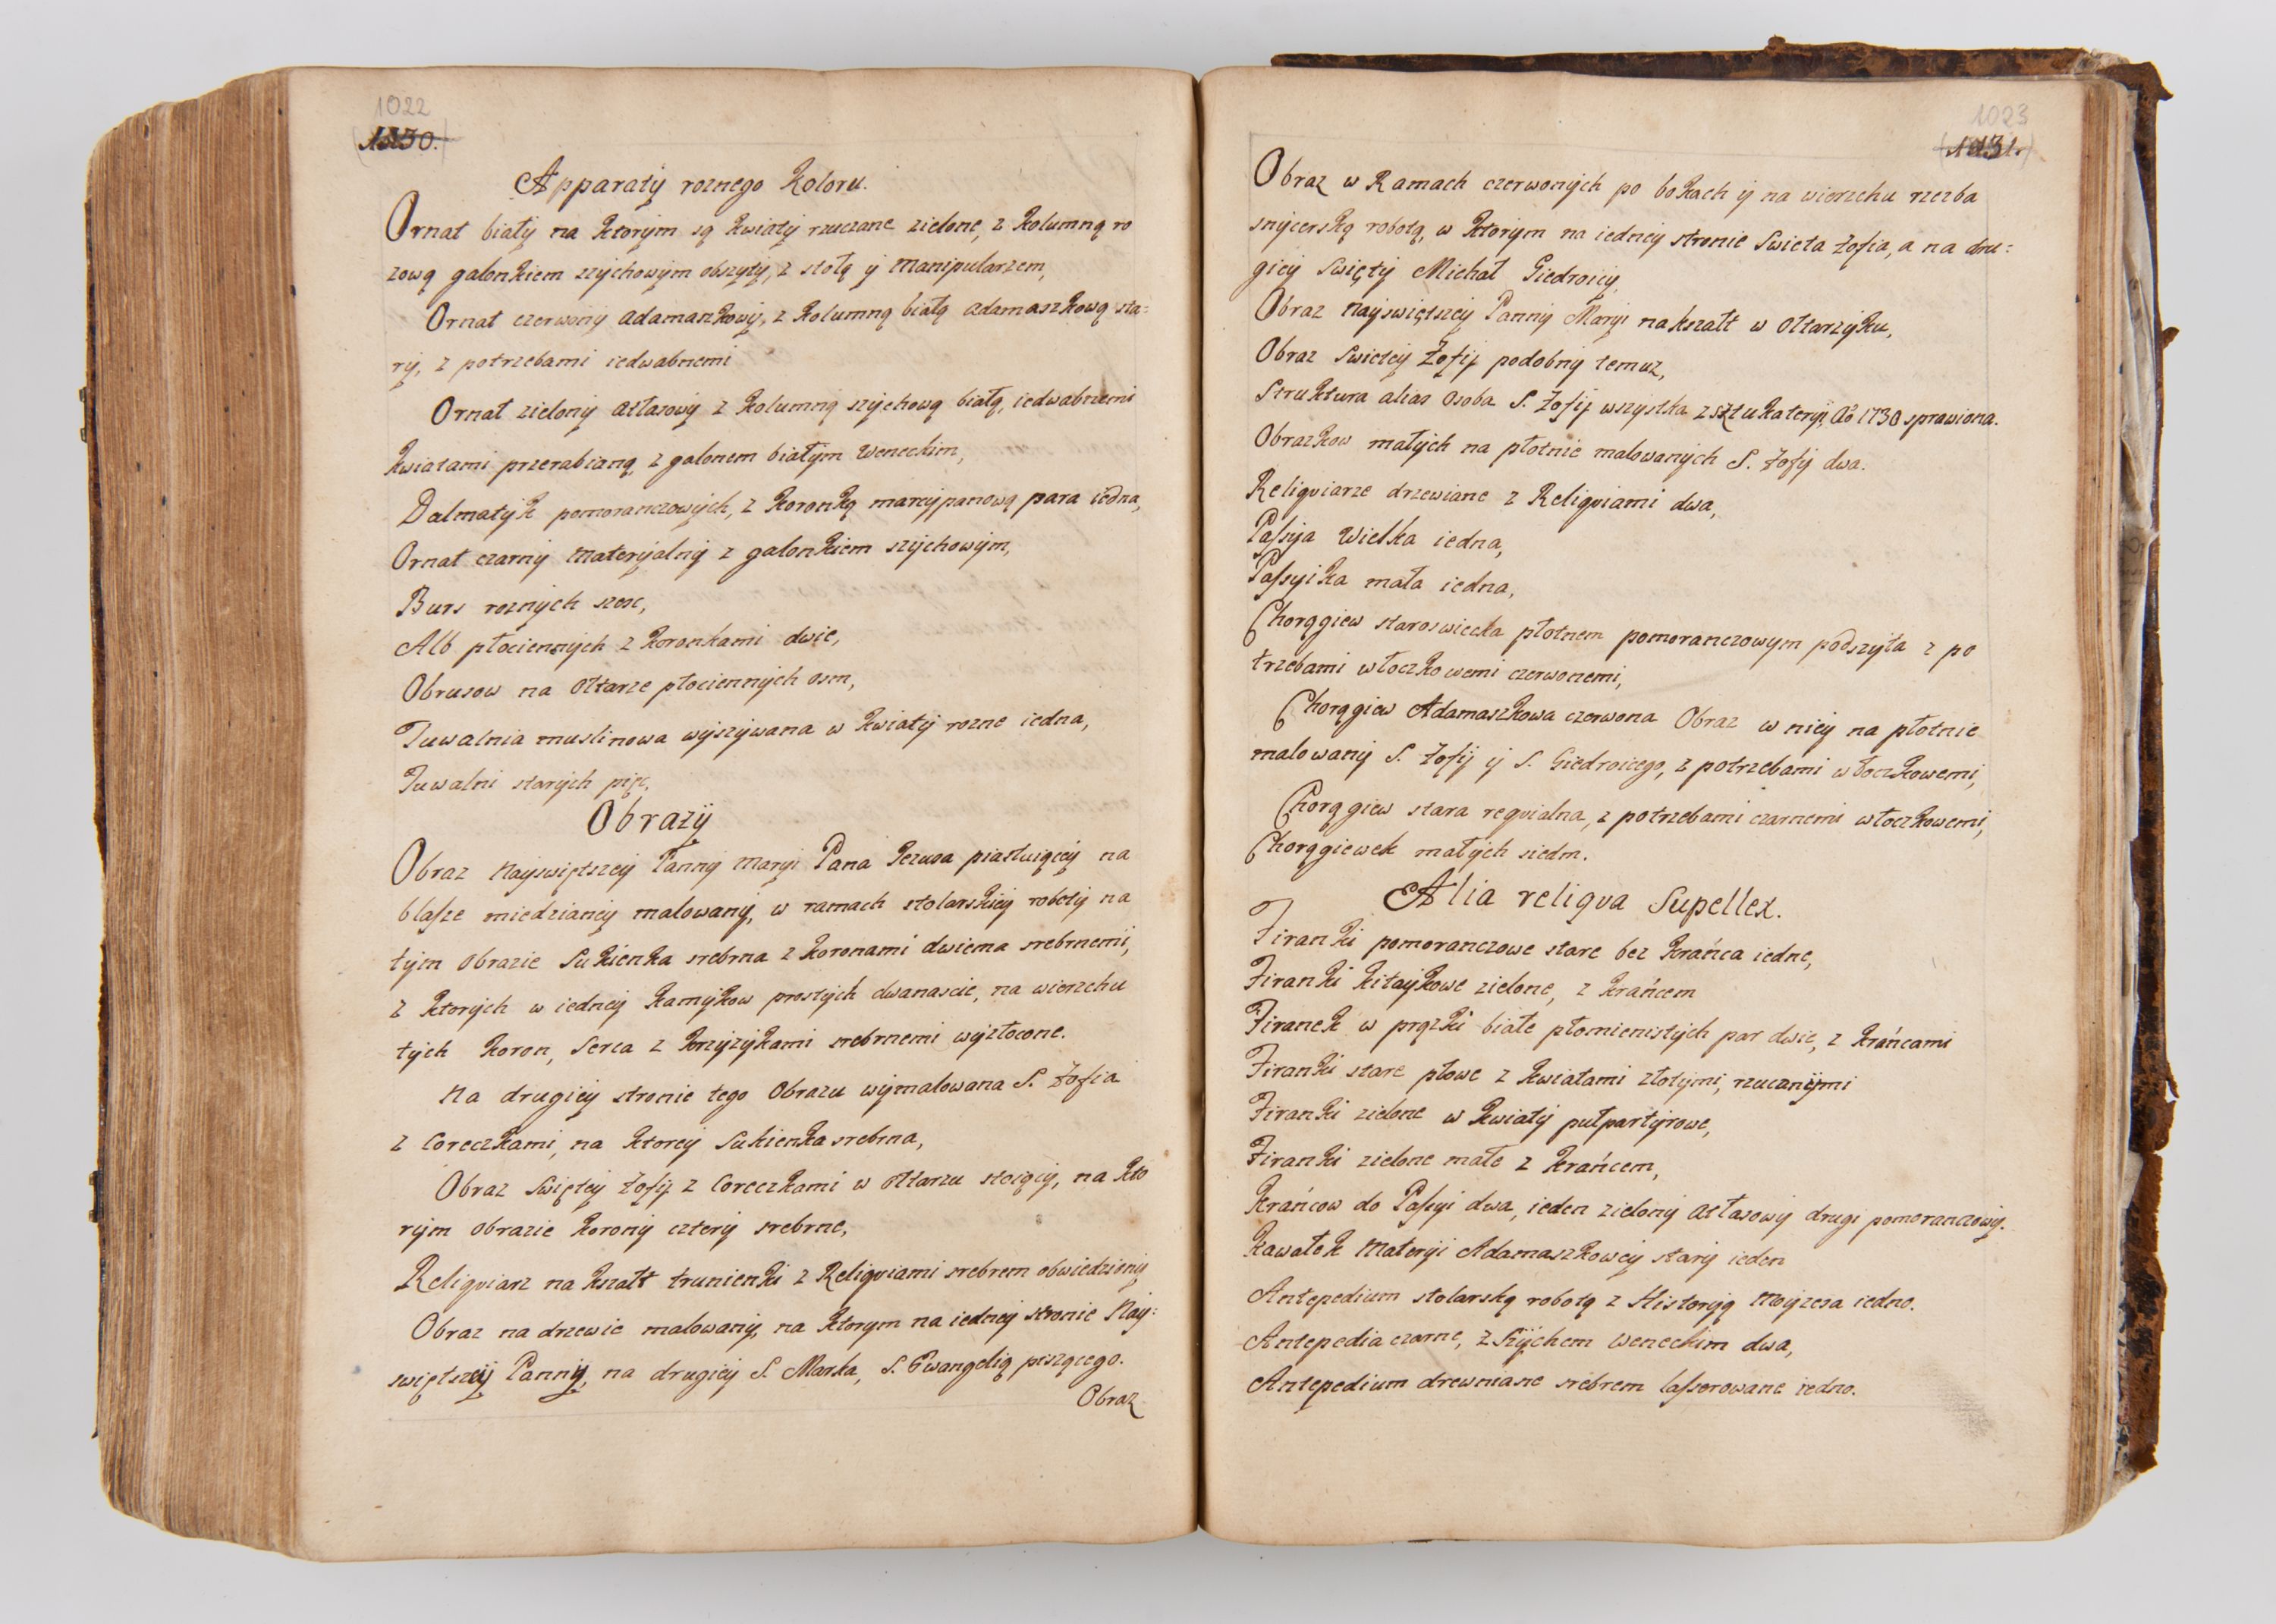 1022
1130.
Apparaty roznego Koloru.
Ornat biały na ktorym są kwiaty rzucane zielone, z kolumną ro
zową galonkiem szychowym obszyty, z stołą y Manipularzem,
Ornat czerwony adamaszkowy, z kolumną białą adamaszkową sta=
ry, z potrzebami iedwabnemi
Ornat zielony atłasowy z kolumną szychową białą, iedwabnemi
kwiatami przerabianą, z galonem białym Weneckim,
Dalmatyk pomoranczowych, z koronką marcypanową para iedna,
Ornat czarny materyalny z galonkiem szychowym,
Burs roznych szesc,
Alb płociennych z koronkami dwie,
Obrusow na Ołtarze płociennych osm,
Tuwalnia muslinowa wyszywana w kwiaty rozne iedna,
Tuwalni starych pięc,
Obrazy
Obraz Nayswiętszey Panny Maryi Pana Jezusa piastuiącey na
blasze miedzianey malowany, w ramach stolarskiey roboty na
tym Obrazie Sukienka srebrna z koronami dwiema srebrnemi,
z ktorych w iedney kamykow prostych dwanascie, na wierzchu
tych koron, Serca z krzyzykami srebrnemi wyzłocone.
Na drugiey stronie tego Obrazu wymalowana S. Zofia
z Coreczkami, na ktorey Sukienka srebrna,
Obraz Swiętey Zofij z Coreczkami w Ołtarzu stoiący, na kto
rym obrazie korony cztery srebrne,
Religviarz na kszałt trunienki z Religviami srebrem obwiedziony,
Obraz na drzewie malowany, na ktorym na iedney stronie Nay=
swiętszey Panny, na drugiey S. Marka, S. Ewangelią piszącego.
Obraz
1023
1131.
Obraz w Ramach czerwonych po bokach y na wierzchu rzezba
snycerską robotą, w ktorym na iedney stronie Swieta Zofia, a na dru=
giey Swięty Michał Giedroicy,
Obraz Nayswiętszey Panny Maryi na kszałt w Ołtarzyku,
Obraz Swietey Zofij podobny temuz,
Struktura alias Osoba S. Zofij wszystka z sztukateryi, Ao 1730 sprawiona.
Obrazkow małych na płotnie malowanych S. Zofij dwa.
Religviarze drzewiane z Religviami dwa,
Passyja Wielka iedna,
Passyika mała iedna,
Chorągiew staroswiecka płotnem pomoranczowym podszyta z po
trzebami włoczkowemi czerwonemi,
Chorągiew Adamaszkowa czerwona Obraz w niey na płotnie
malowany S. Zofij y S. Giedroicego, z potrzebami włoczkowemi,
Chorągiew stara reqvialna, z potrzebami czarnemi włoczkowemi,
Chorągiewek małych siedm.
Alia reliqva Supellex.
Firanki pomoranczowe stare bez krańca iedne,
Firanki kitaykowe zielone, z krańcem
Firanek w prązki białe płomienistych par dwie, z krańcami
Firanki stare płowe z kwiatami złotymi, rzucanymi
Firanki zielone w kwiaty pułpartyrowe,
Firanki zielone małe z krańcem,
Krańcow do Passyi dwa, ieden zielony atłasowy drugi pomoranczowy.
Kawałek Materyi Adamaszkowey stary ieden
Antepedium stolarską robotą z Historyją Moyzesa iedno.
Antepedia czarne, z Szychem Weneckim dwa,
Antepedium drewniane srebrem lasserowane iedno.